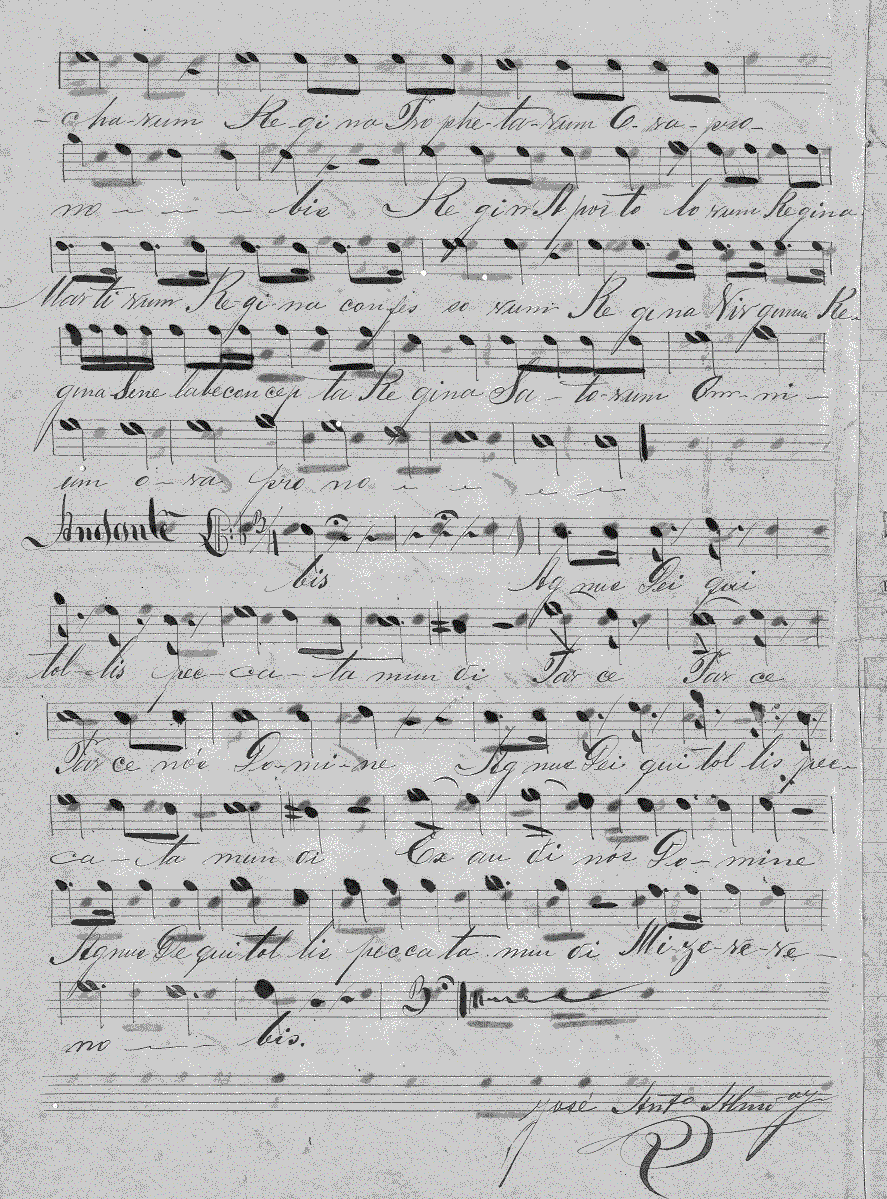 -cha-rum Re-gi na Pro phe-ta-rum O-ra-pro-
no - - - - bis Re gina A pos to lo rum Regina
Marti rum Re-gi-na confes so rum Re gina Virginum Re-
gina Sine labe concep ta Re gina Sa-to-rum Om-ni-
um o-ra pro no - - - -
Andante
bis Ag nus Dei qui
tol-lis pec-ca-ta mun di Par ce Par ce
Par ce nós Do-mi-ne Ag nus Dei qui tol-lis pec-
ca-ta mun di Ex au di nós Do-mine
Agnus De qui tol lis pecca ta mun di Mi-ze-re-re-
no - - - bis.
José Anto